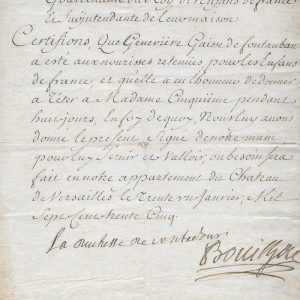 Gouvernante de [...] des Enfans de france
et Surjntendante de leur maison
Certifions, Que Geneviève Gaine de fontauban
a esté aux nourices retenües pour les Enfans
de france, et quelle a eu l'honneur de donner
a Téter a Madame Cinquième pendant
huit jours, En foy de quoy Nous luy avons
donné le present, Signé de nôtre main
pour luy Servir et Valloir, ou besoin sera
fait en notre appartement du Chateau
de Versailles le trente un Janvier, Mil
Sept Cent trente Cinq.
La duchesse de ventadour